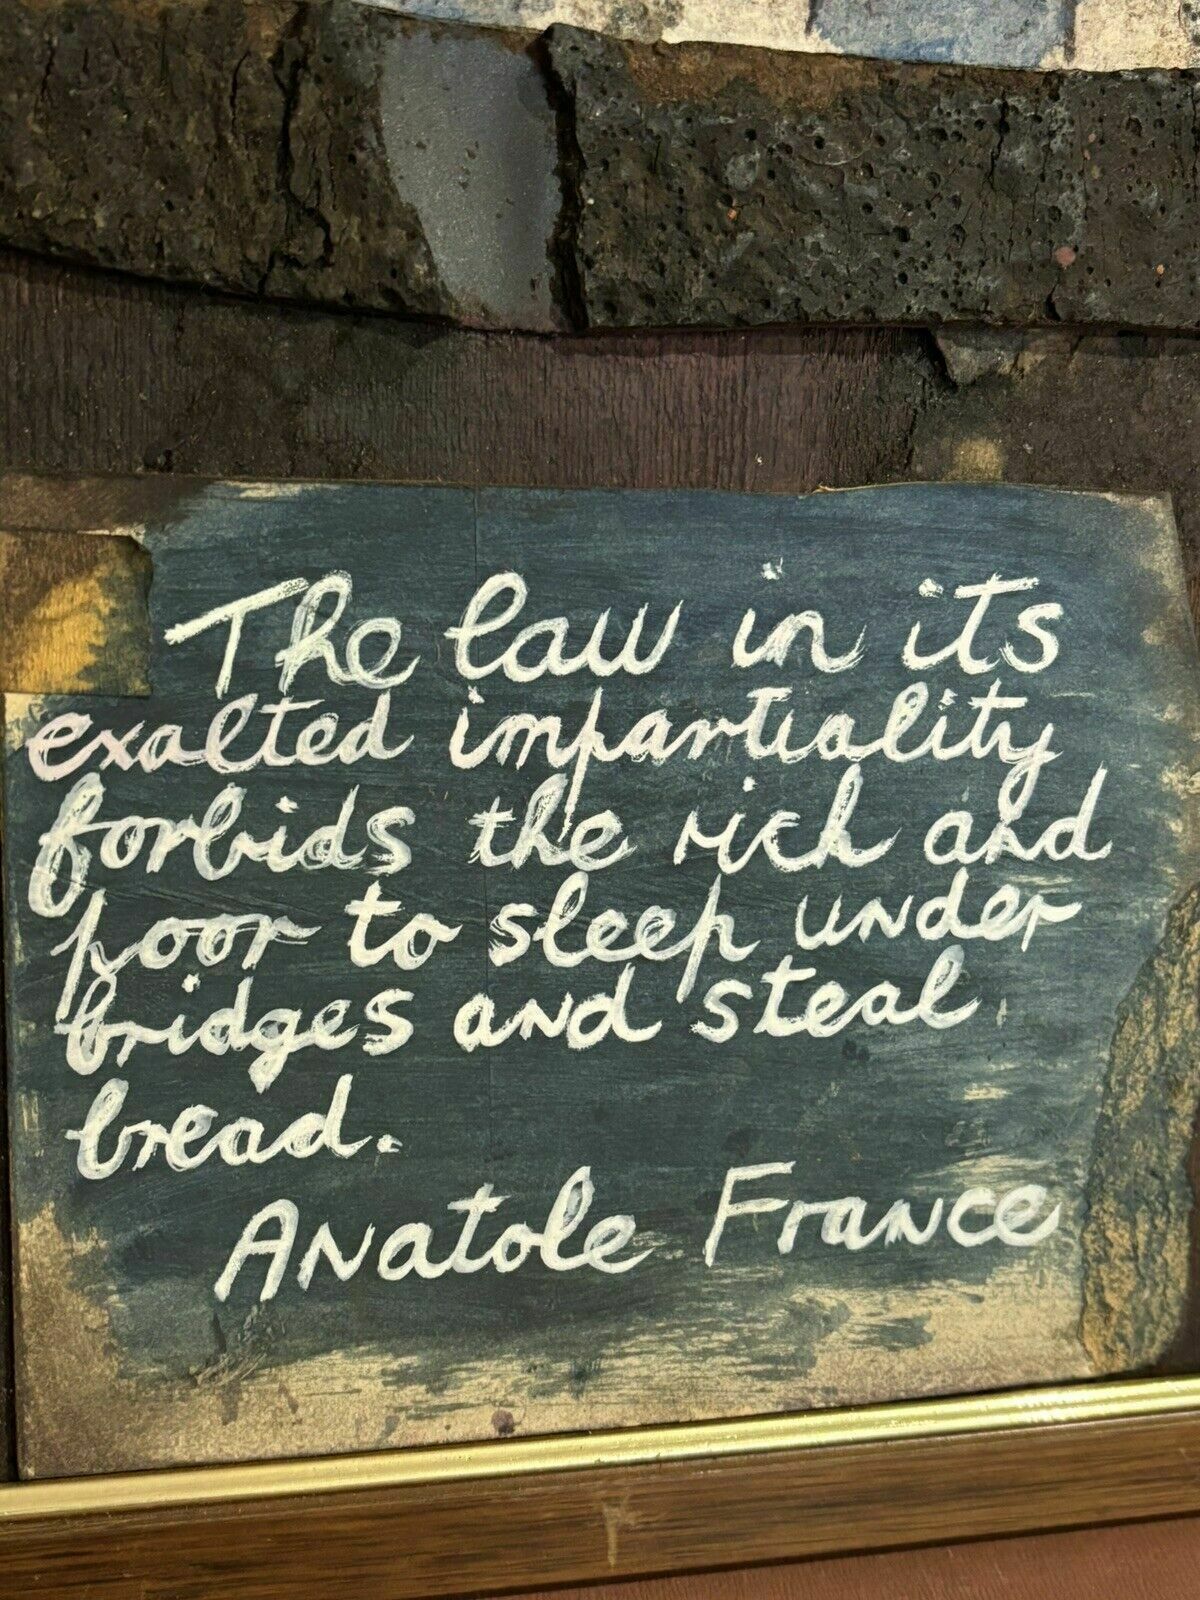 The law in its
exalted impartiality
forbids the rich and
poor to sleep under
bridges and steal
bread.
Anatole France